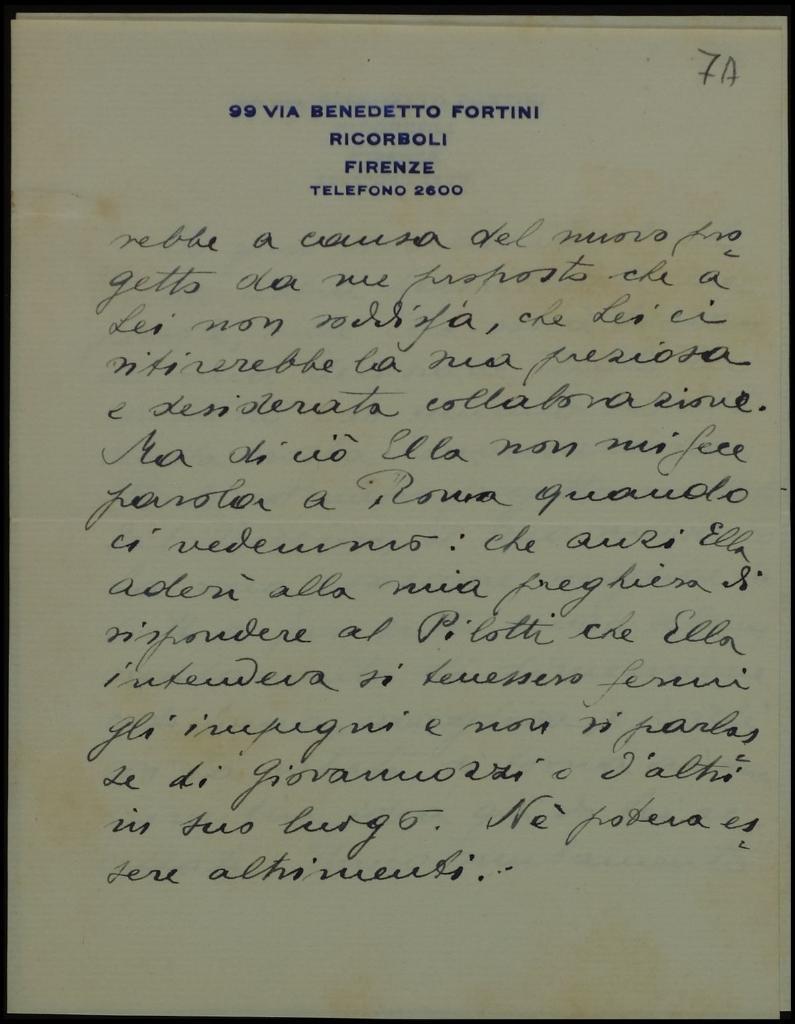 7A
99 VIA BENEDETTO FORTINI
RICORBOLI
FIRENZE
TELEFONO 2600
rebbe a causa del nuovo pro=
getto da me proposto che a
Lei non soddisfa, che Lei ci
ritirerebbe la sua preziosa
e desiderata collaborazione.
Ma di ciò Ella non mi fece
parola a Roma quando
ci vedemmo: che anzi Ella
aderì alla mia preghiera di
rispondere al Pilotti che Ella
intendeva si tenessero fermi
gli impegni e non si parlas=
se di Giovannozzi o d'altri
in suo luogo. Nè poteva es=
sere altrimenti.-